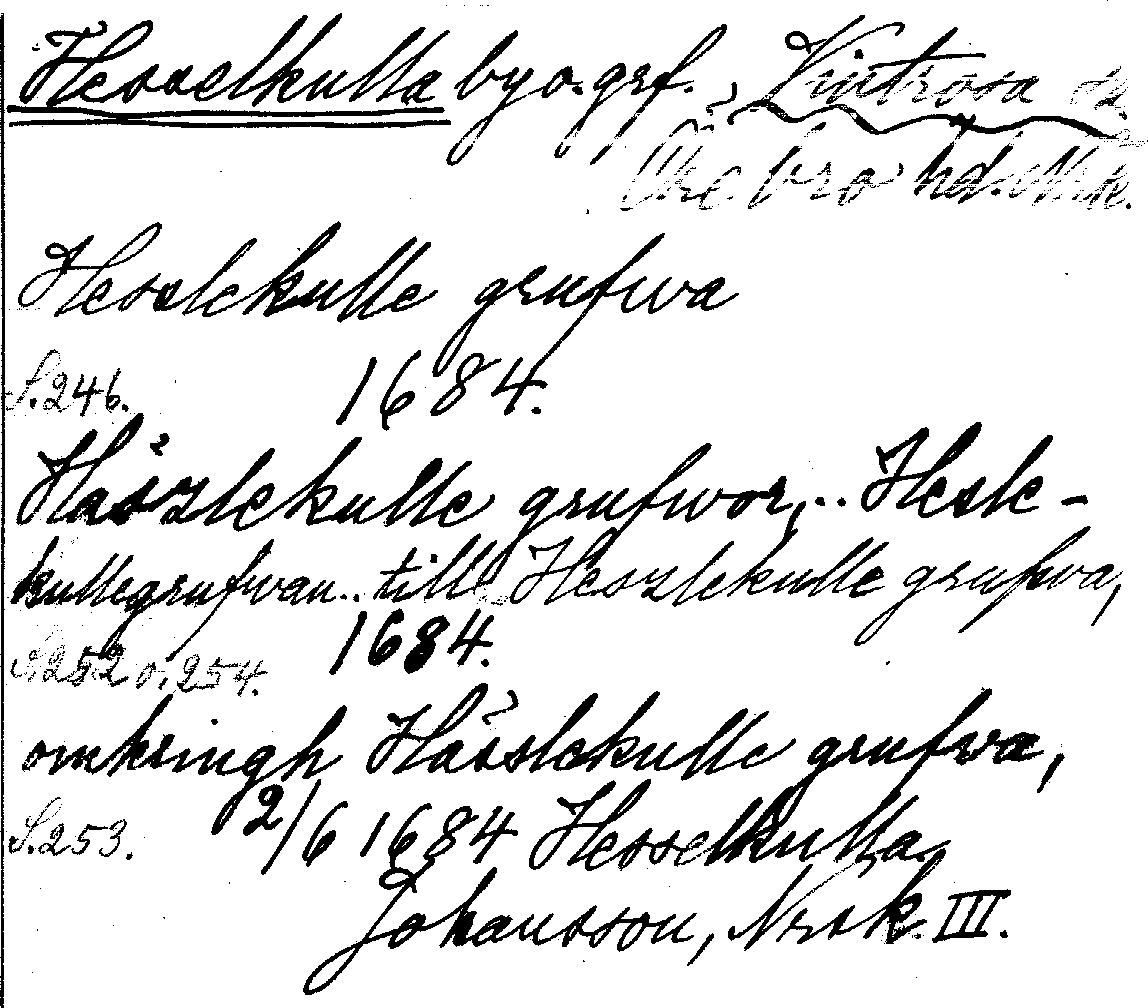 Hesselkulla by o. grf. Vintrosa sn.
Örebro hd. Nrk.
Hesslekulle grufwa
S. 246. 1684.
Hässzlekulle grufwor, .. Hesle-
kullegrufwan .. till Heszlekulle grufwa,
S. 252 o. 254. 1684.
omkringh Hässlekulle grufwa,
S. 253. 2/6 1684 Hesselkulla.
Johansson, Nrsk. III.